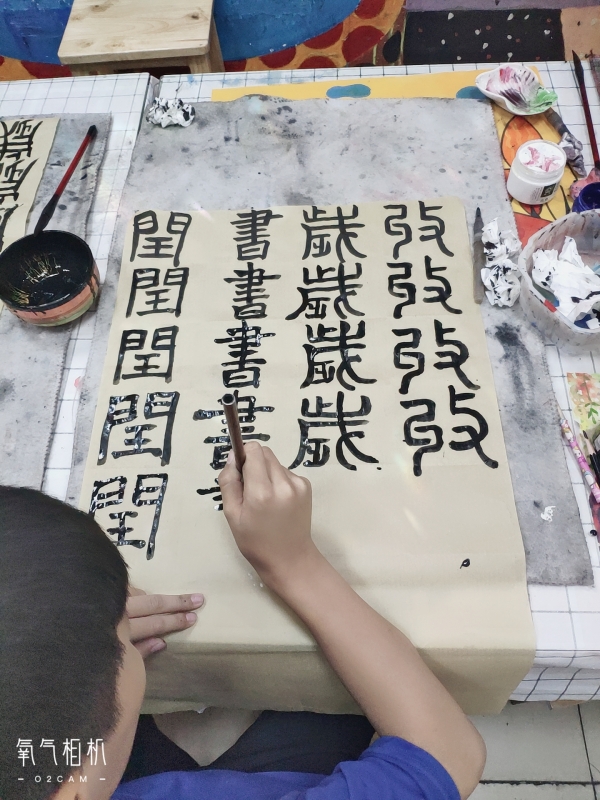 攷攷攷攷
歲歲歲歲
書書書書
閏閏閏閏閏
氧气相机
- O2CAM -